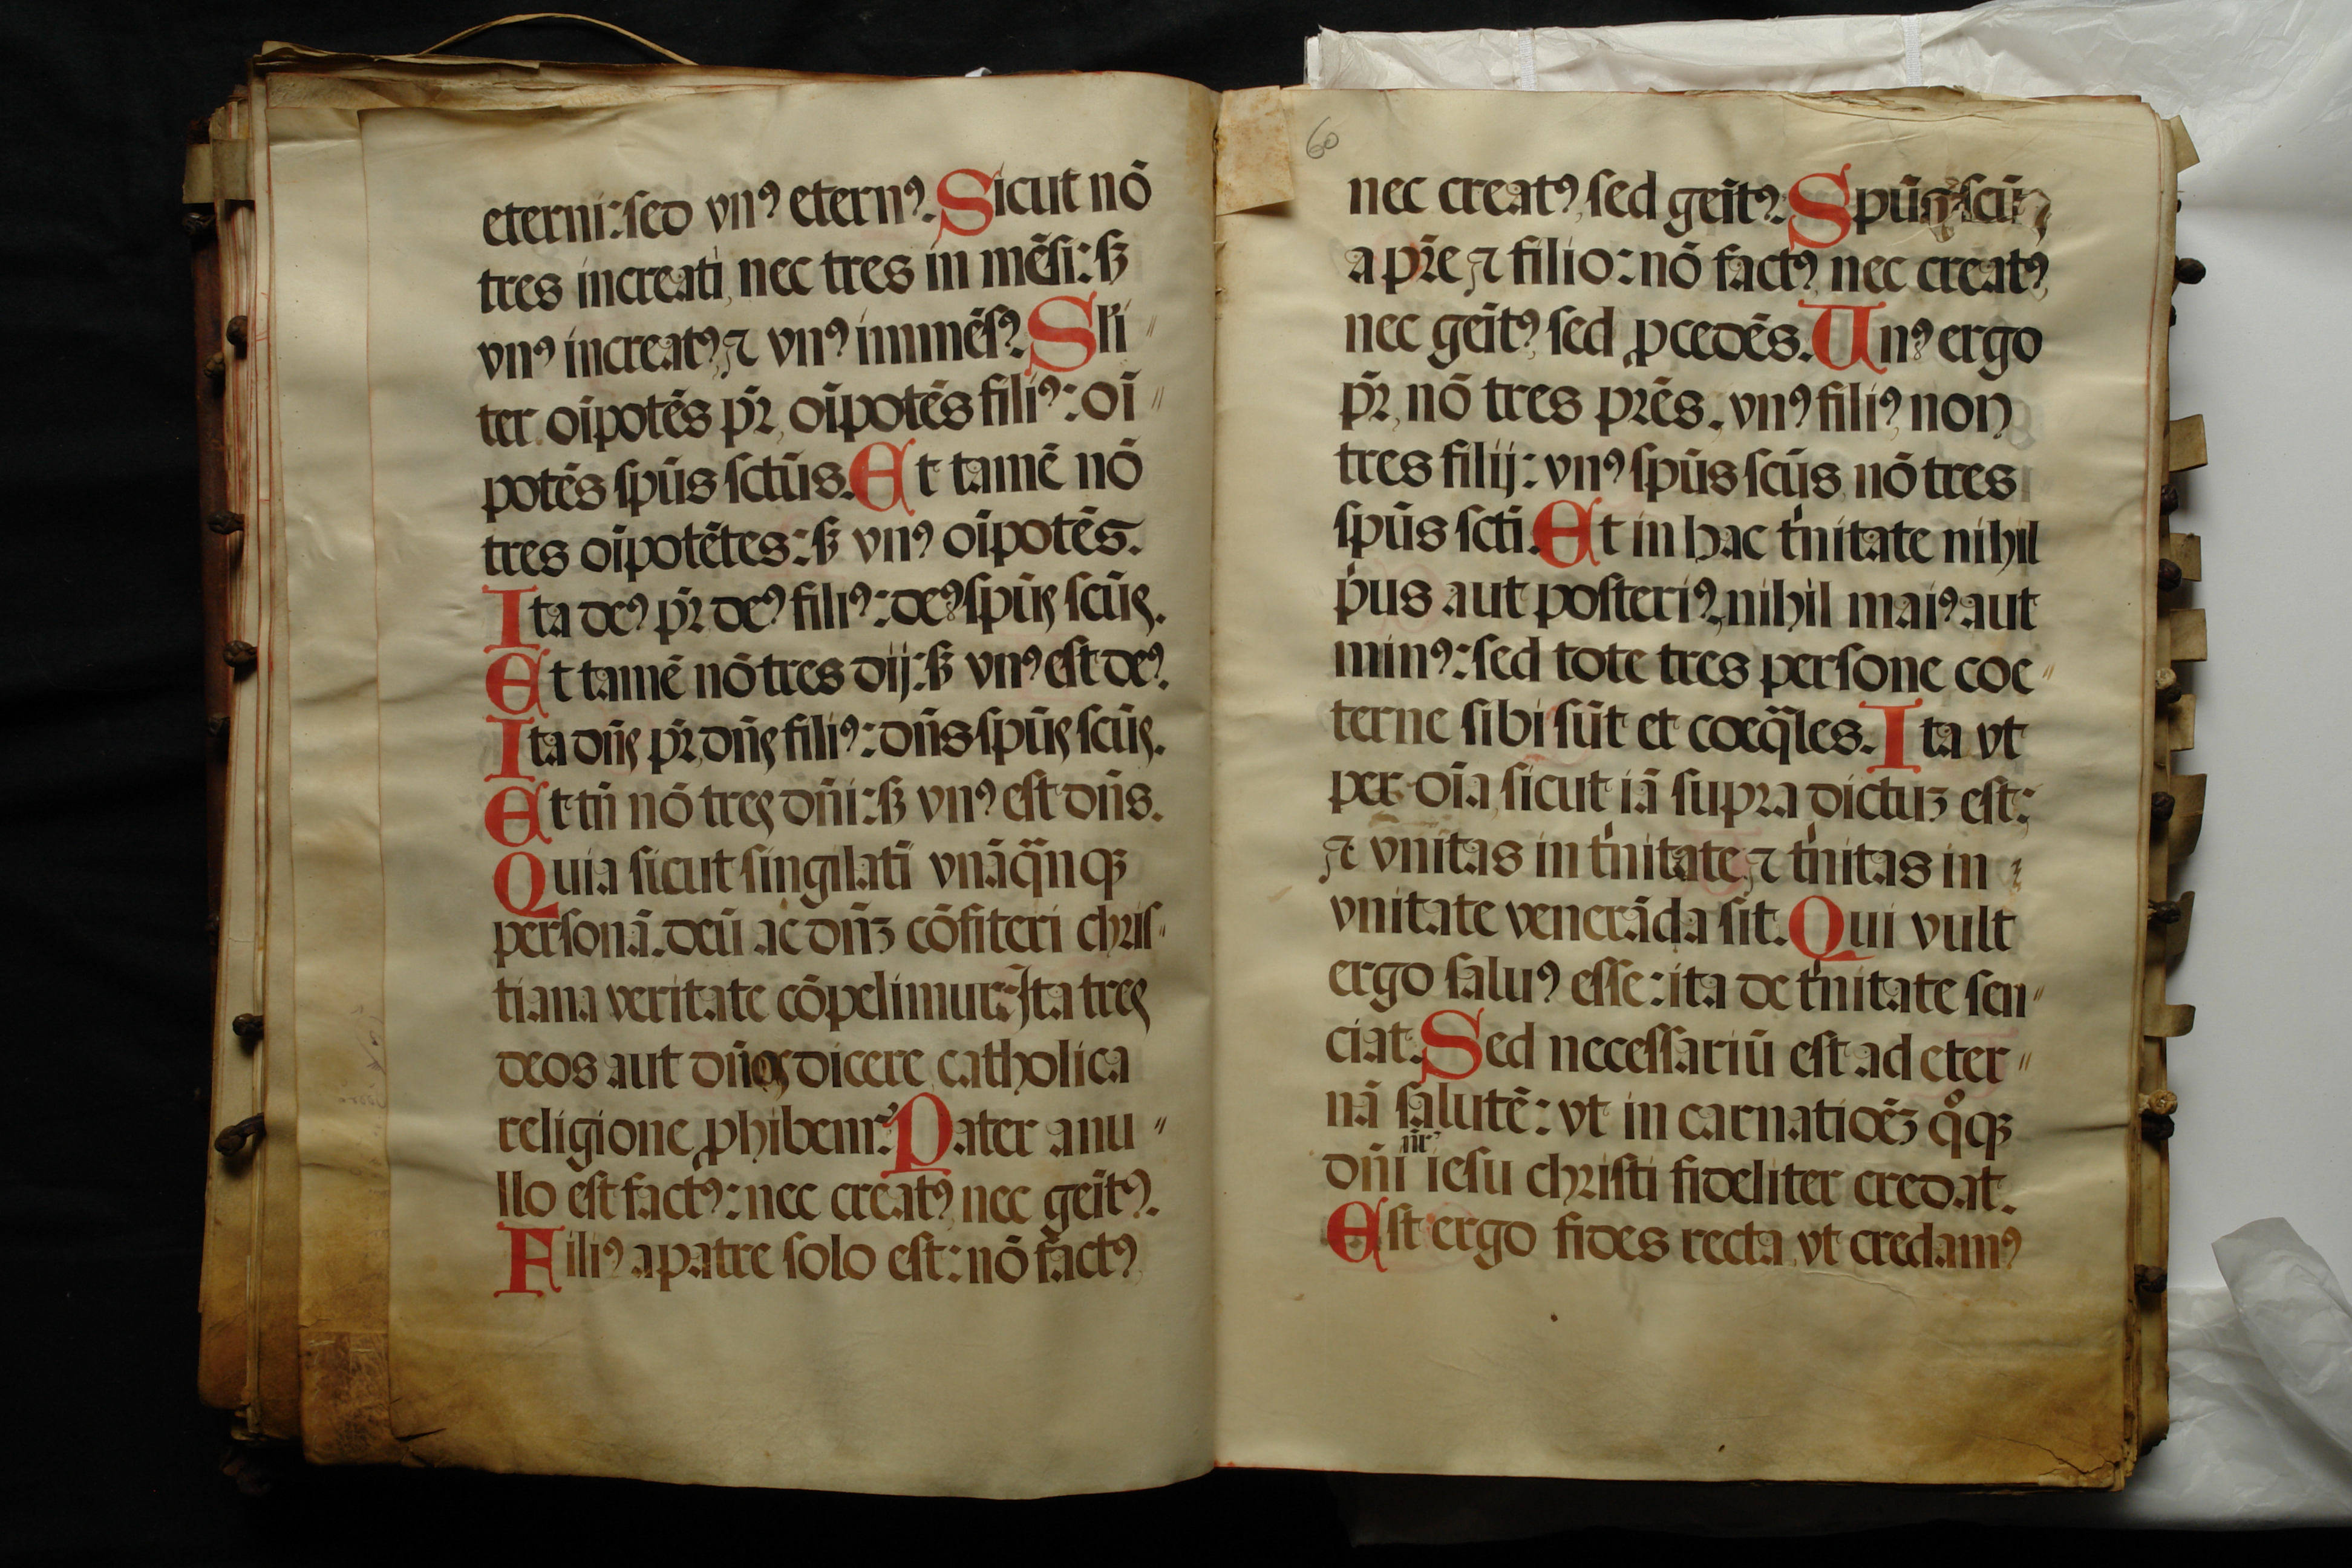 eterni: sed vnꝰ eternꝰ. Sicut nō
tres increati, nec tres in mēsi: sꝫ
vnꝰ increatꝰ, ⁊ vnꝰ immēsꝰ. Sĺi〃
ter oīpotēs pr̄, oīpotēs filiꝰ: oī〃
potēs spūs sctūs. Et tamē nō
tres oīpotētes: sꝫ vnꝰ oīpotēs.
Ita deꝰ pr̄ deꝰ filiꝰ: deꝰ spūs scūs.
Et tamē nō tres dij: sꝫ vnꝰ est deꝰ.
Ita dn̄s pr̄, dn̄s filiꝰ: dn̄s spūs scūs.
Et tn̄ nō tres dn̄i: sꝫ vnꝰ est dn̄s.
Quia sicut singilatī vnāq̄nqꝫ
personā. deū ac dn̄ꝫ cōfiteri chris〃
tiana veritate cōpelimur: Ita tres
deos aut dn̄os dicere catholica
religione ꝓhibemr̄. Pater anu〃
llo est factꝰ: nec creatꝰ, nec geītꝰ.
Filiꝰ apatre solo est: nō factꝰ,
60
nec creatꝰ, sed geītꝰ. Spūs scūs
a pr̄e ⁊ filio: nō factꝰ, nec creatꝰ,
nec geītꝰ, sed ꝓcedēs. Unꝰ ergo
pr̄, nō tres prēs. vnꝰ filiꝰ, non
tres filij: vnꝰ spūs scūs, nō tres
spūs scti. Et in hac tⁱnitate nihil
pⁱus aut posteriꝰ, nihil maiꝰ aut
minꝰ: sed tote tres persone coe〃
terne sibi sūt et coeq̄les. Ita vt
per oīa, sicut iā supra dictuꝫ est:
⁊ vnitas in tⁱnitate, ⁊ tⁱnitas in
vnitate venerāda sit. Qui vult
ergo saluꝰ esse: ita de tⁱnitate sen〃
ciat. Sed necessariū est ad eter〃
nā salutē: vt in carnatioēꝫ qͦqꝫ
dn̄i nr̄i iesu christi fideliter credat.
Est ergo fides recta, vt credamꝰ